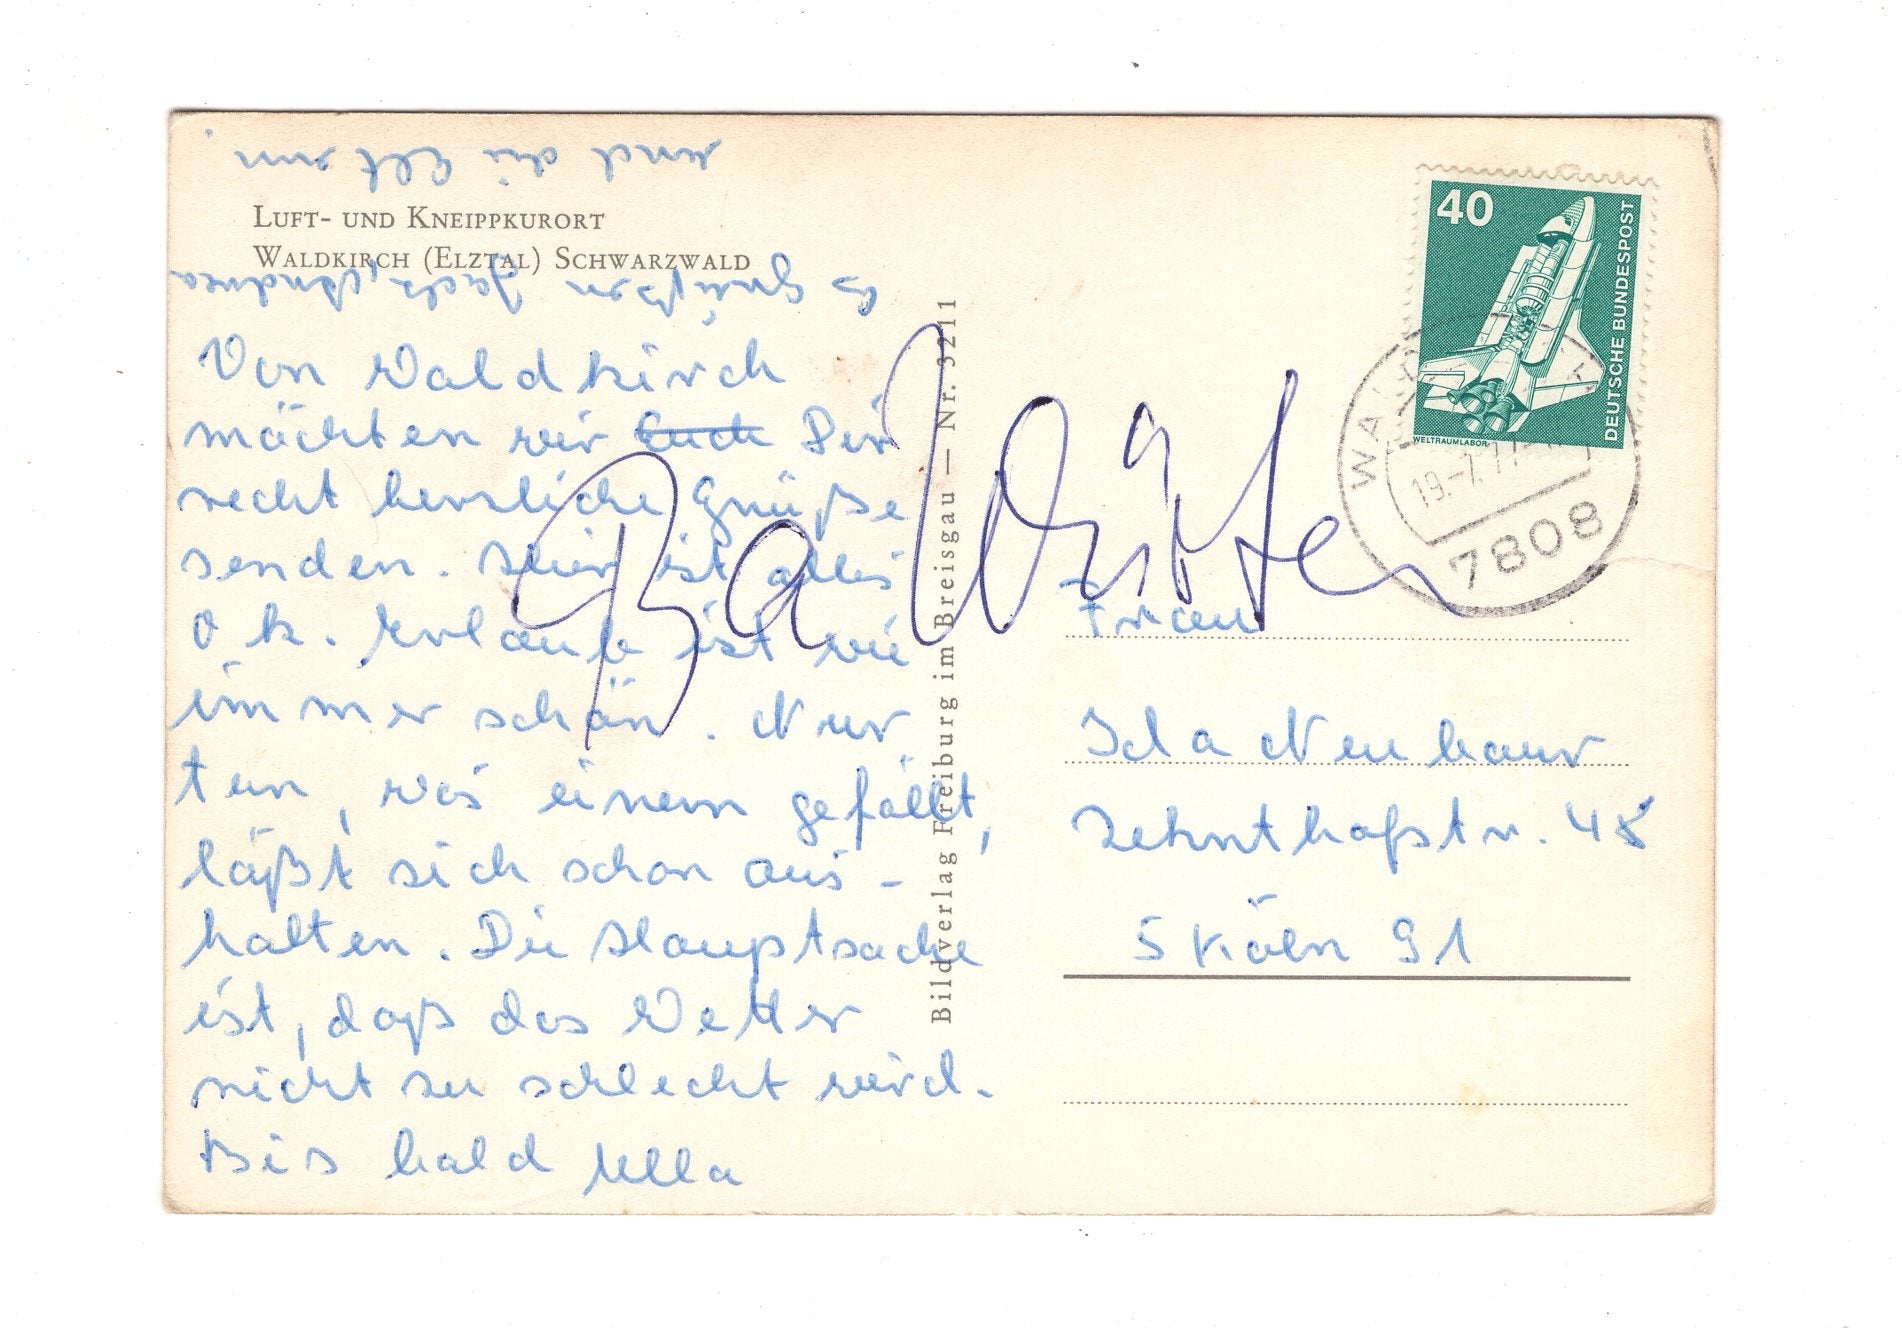 LUFT- UND KNEIPPKURORT
WALDKIRCH (ELZTAL) SCHWARZWALD
Von Waldkirch
möchten wir Euch Dir
recht herzliche Grüße
senden. Hier ist alles
O k. Urlaub ist wie
immer schön. Nur
tun, was einem gefällt,
läßt sich schon aus-
halten. Die Hauptsache
ist, daß das Wetter
nicht zu schlecht wird.
Bis bald Ulla
Es grüßen Jack, Andrea
und die Eltern
Bildverlag Freiburg im Breisgau — Nr. 3211
40
DEUTSCHE BUNDESPOST
WELTRAUMLABOR
7808
Frau
Ida Neubaur
Zehnthofstr. 48
5 Köln 91